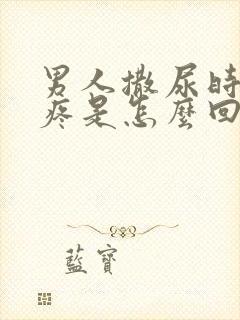 男人撒尿時
疼是怎麼回
藍寶